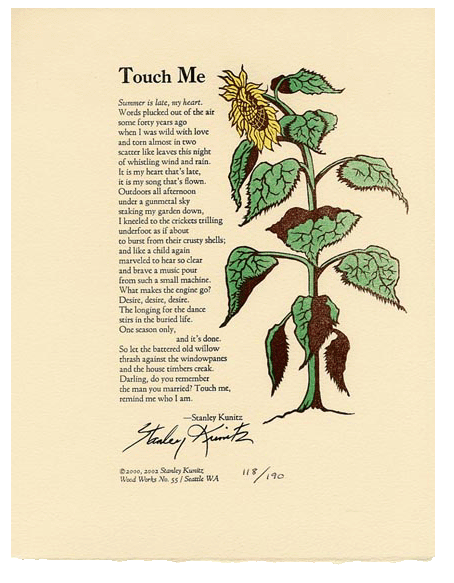 Touch Me
Summer is late, my heart.
Words plucked out of the air
some forty years ago
when I was wild with love
and torn almost in two
scatter like leaves this night
of whistling wind and rain.
It is my heart that's late,
it is my song that's flown.
Outdoors all afternoon
under a gunmetal sky
staking my garden down,
I kneeled to the crickets trilling
underfoot as if about
to burst from their crusty shells;
and like a child again
marveled to hear so clear
and brave a music pour
from such a small machine.
What makes the engine go?
Desire, desire, desire.
The longing for the dance
stirs in the buried life.
One season only,
and it's done.
So let the battered old willow
thrash against the windowpanes
and the house timbers creak.
Darling, do you remember
the man you married? Touch me,
remind me who I am.
—Stanley Kunitz
Stanley Kunitz
©2000, 2002 Stanley Kunitz
Wood Works No. 55 / Seattle WA
118/190